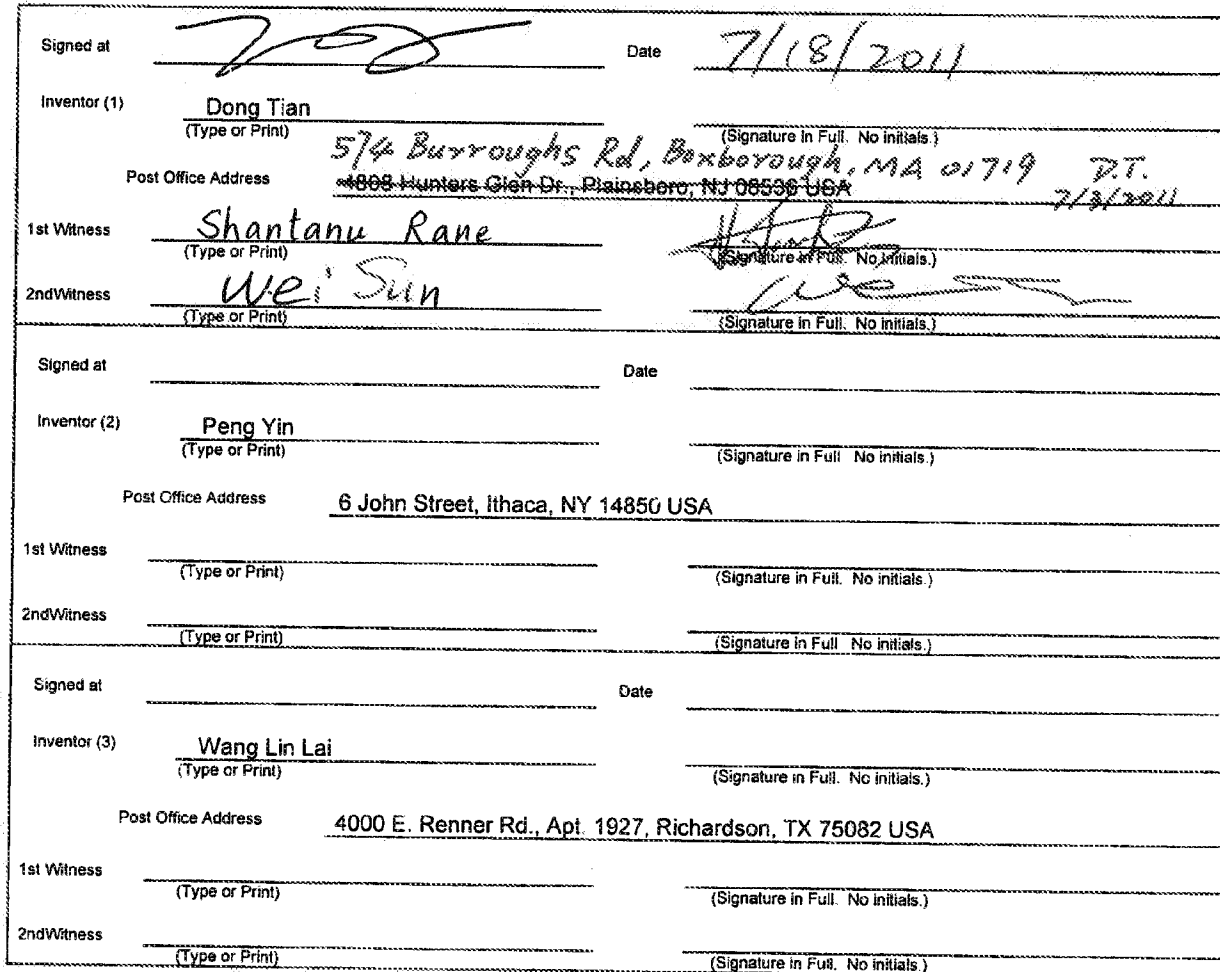 Signed at Date 7/18/2011
Inventor (1) Dong Tian
(Type or Print) (Signature in Full. No initials.)
574 Burroughs Rd, Boxborough, MA 01719 D.T.
Post Office Address 4808 Hunters Glen Dr., Plainsboro, NJ 08536 USA
1st Witness Shantanu Rane
(Type or Print) (Signature in Full. No initials.)
2ndWitness Wei Sun
(Type or Print) (Signature in Full. No initials.)
Signed at Date
Inventor (2) Peng Yin
(Type or Print) (Signature in Full No initials.)
Post Office Address 6 John Street, Ithaca, NY 14850 USA
1st Witness
(Type or Print) (Signature in Full. No initials.)
2ndWitness
(Type or Print) (Signature in Full No initials.)
Signed at Date
Inventor (3) Wang Lin Lai
(Type or Print) (Signature in Full. No initials.)
Post Office Address 4000 E. Renner Rd., Apt. 1927, Richardson, TX 75082 USA
1st Witness
(Type or Print) (Signature in Full. No initials.)
2ndWitness
(Type or Print) (Signature in Full. No initials.)